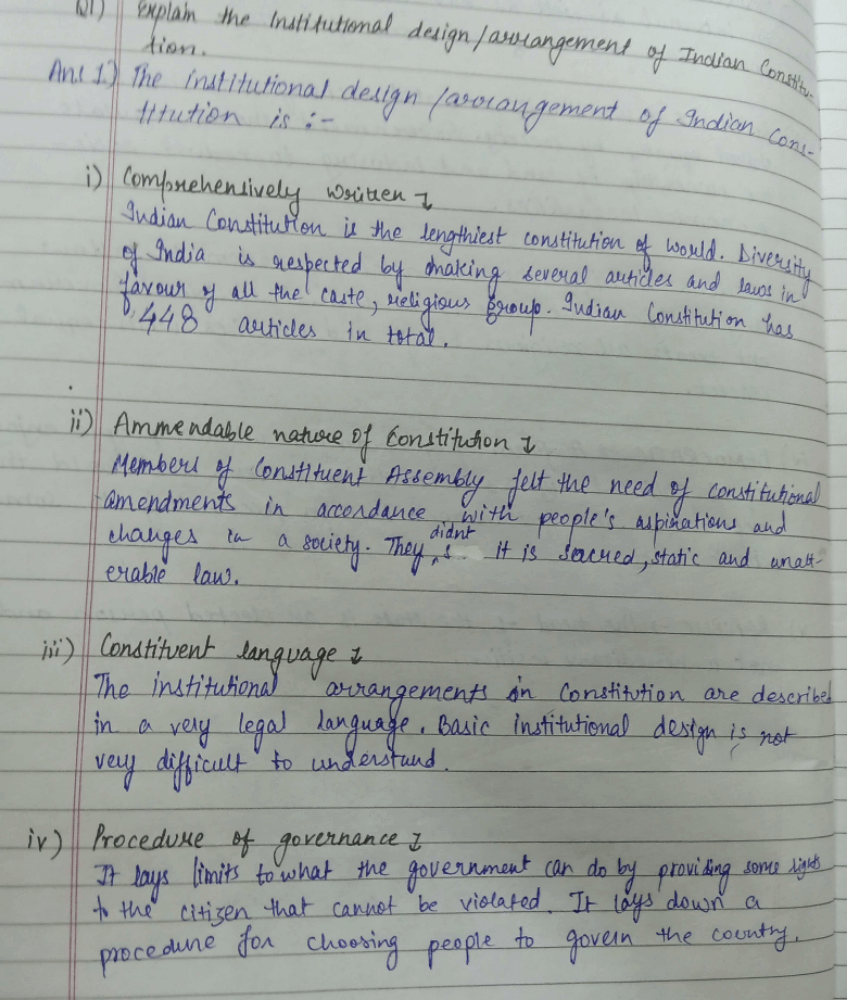 Q1) Explain the Institutional design/arrangement of Indian Constitu-
tion.
Ans 1.) The institutional design/arrangement of Indian Cons-
titution is :-
i) Comprehensively written
Indian Constitution is the lengthiest constitution of world. Diversity
of India is respected by making several articles and laws in
favour of all the caste, religious group. Indian Constitution has
448 articles in total.
ii) Ammendable nature of Constitution
Members of Constituent Assembly felt the need of constitutional
amendments in accordance with people's aspirations and
changes in a society. They didnt it is sacred, static and unalt-
erable law.
iii) Constituent language
The institutional arrangements in Constitution are described
in a very legal language. Basic institutional design is not
very difficult to understand.
iv) Procedure of governance
It lays limits to what the government can do by providing some rights
to the citizen that cannot be violated. It lays down a
procedure for choosing people to govern the country.